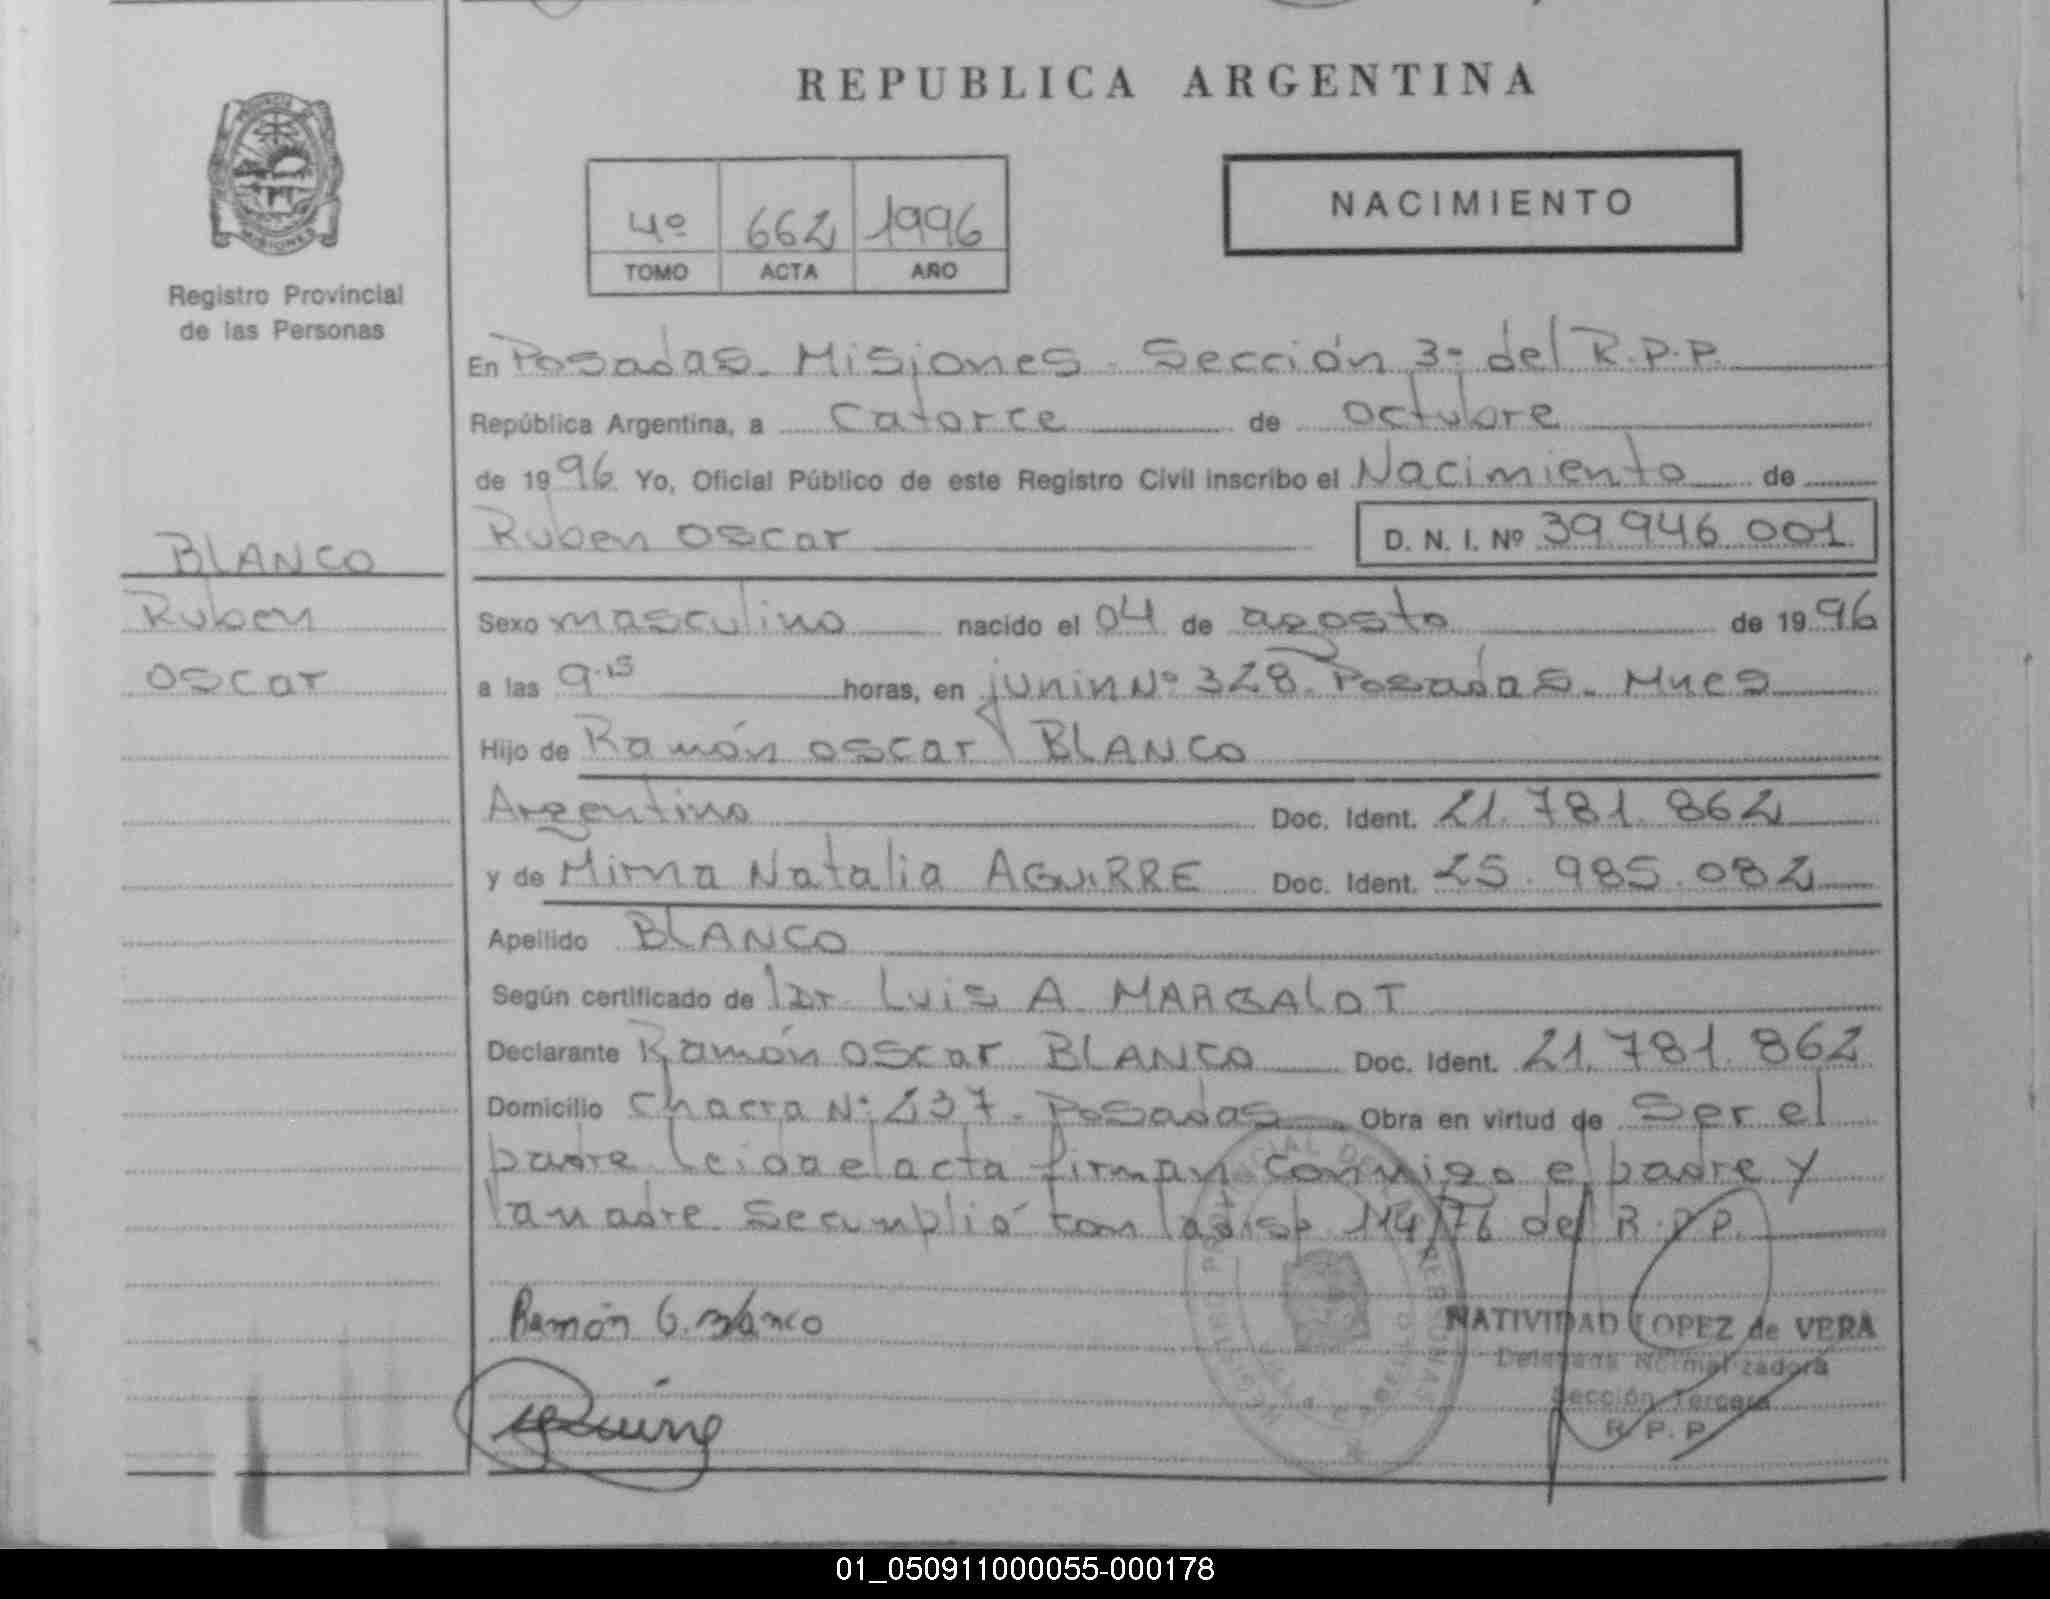 REPUBLICA ARGENTINA
NACIMIENTO
4º 662 1996
TOMO ACTA AÑO
MISIONES
Registro Provincial
de las Personas
En Posadas. Misiones. Sección 3ª del R.P.P.
República Argentina, a Catorce de octubre
de 1996 Yo, Oficial Público de este Registro Civil inscribo el Nacimiento de
Ruben oscar D. N. I. Nº 39 946 001
BLANCO
Ruben
oscar
Sexo masculino nacido el 04 de agosto de 1996
a las 9.15 horas, en junin Nº 328. Posadas. Mnes
Hijo de Ramón oscar BLANCO
Argentino Doc. Ident. 21.781.862
y de Mirna Natalia AGUIRRE Doc. Ident. 25.985.082
Apellido BLANCO
Según certificado de Dr. Luis A. MARGALOT
Declarante Ramón oscar BLANCO Doc. Ident. 21.781.862
Domicilio Chacra Nº 237. Posadas Obra en virtud de Ser el
padre Leida el acta firman conmigo el padre y
la madre. Se cumplió con la disp 114/76 del R.P.P.
Ramón O. Blanco
NATIVIDAD LOPEZ de VERA
Delegada Normalizadora
Sección Tercera
R. P. P.
01_050911000055-000178